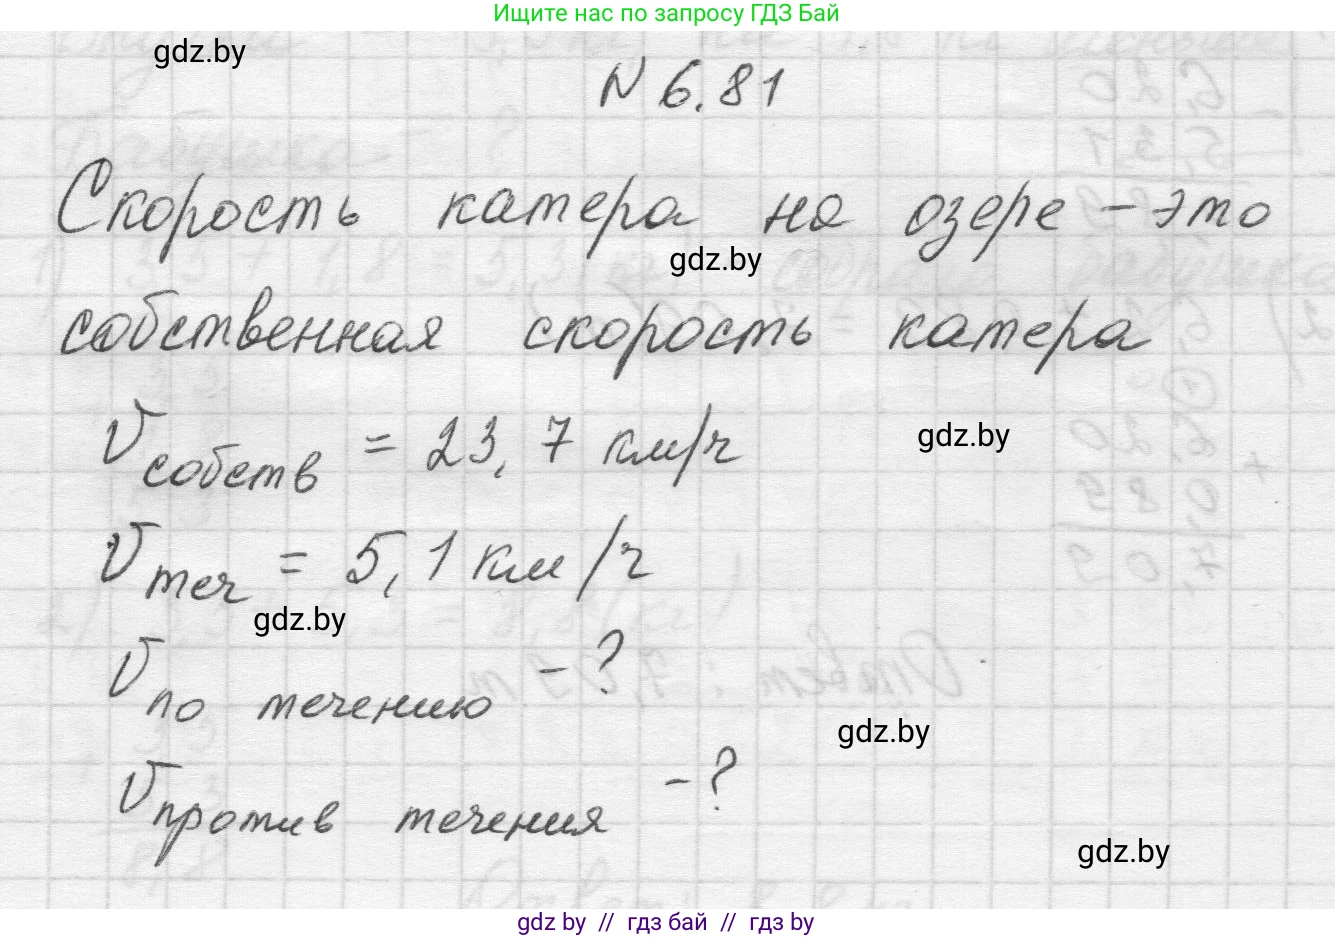 Ищите нас по запросу ГДЗ Бай
gdz.by
N 6.81
Скорость катера на озере - это
gdz.by
собственная скорость катера
Vсобств = 23,7 км/ч
gdz.by
Vтеч = 5,1 км/ч
gdz.by
Vпо течению - ?
gdz.by
Vпротив течения - ?
gdz.by
gdz by // гдз бай // gdz by